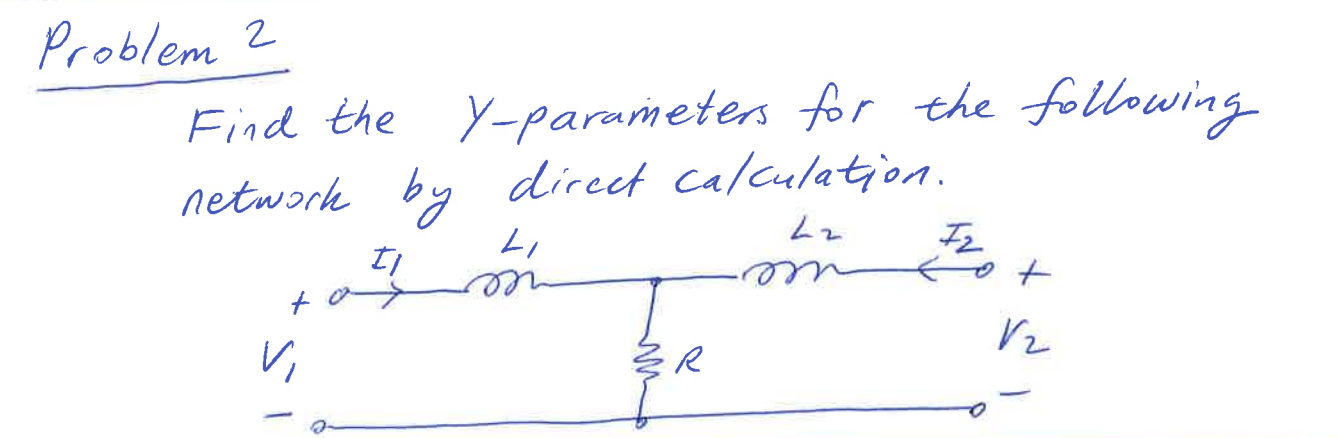 Problem 2
Find the Y-parameters for the following
network by direct calculation.
I1 L1 L2 I2
+ +
V1 R V2
- -